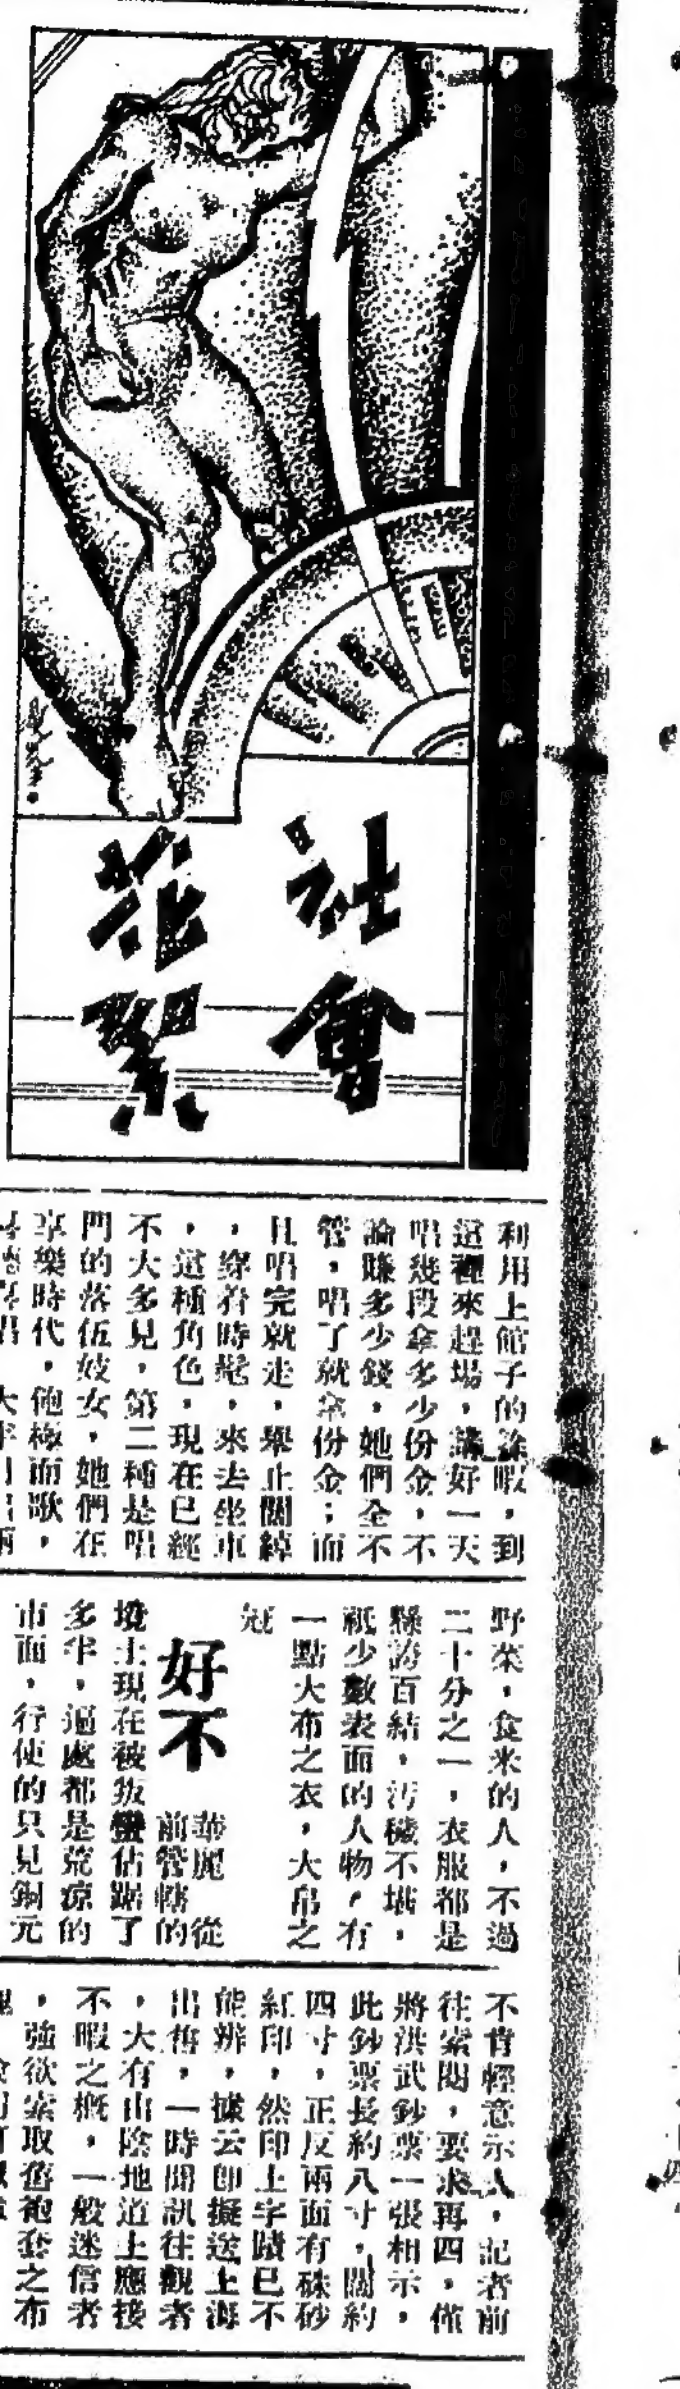 社會
花絮
利用上館子的餘暇，到
這裡來趕場，講好一天
唱幾段拿多少份金，不
論賺多少錢，她們全不
管，唱了就拿份金；而
且唱完就走，舉止闊綽
，穿着時髦，來去坐車
，這種角色，現在已經
不大多見，第二種是唱
門的落伍妓女，她們在
享樂時代，飽極而歌，
野菜，食米的人，不過
二十分之一，衣服都是
縣鶉百結，污穢不堪，
祇少數表面的人物，有
一點大布之衣，大帛之
冠
好不
華麗　從
前管轄的
境土現在被叛蠻佔踞了
多半，遍處都是荒凉的
市面，行使的只見銅元
不肯輕意示人，記者前
往索閱，要求再四，僅
將洪武鈔票一張相示，
此鈔票長約八寸，闊約
四寸，正反兩面有硃砂
紅印，然印上字蹟已不
能辨，據云即擬送上海
出售，一時聞訊往觀者
，大有山陰地道上應接
不暇之概，一般迷信者
，強欲索取舊袍套之布